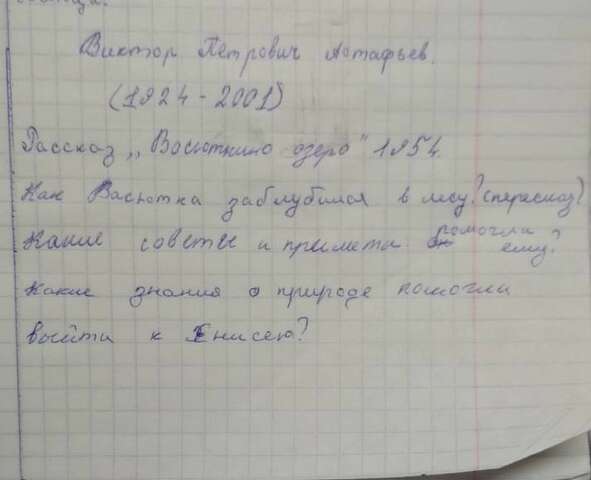 Виктор Петрович Астафьев.
(1924-2001)
Рассказ „Васюткино озеро" 1954.
Как Васютка заблудился в лесу? (пересказ)
Какие советы и приметы помогли ему?
Какие знания о природе помогли
выйти к Енисею?